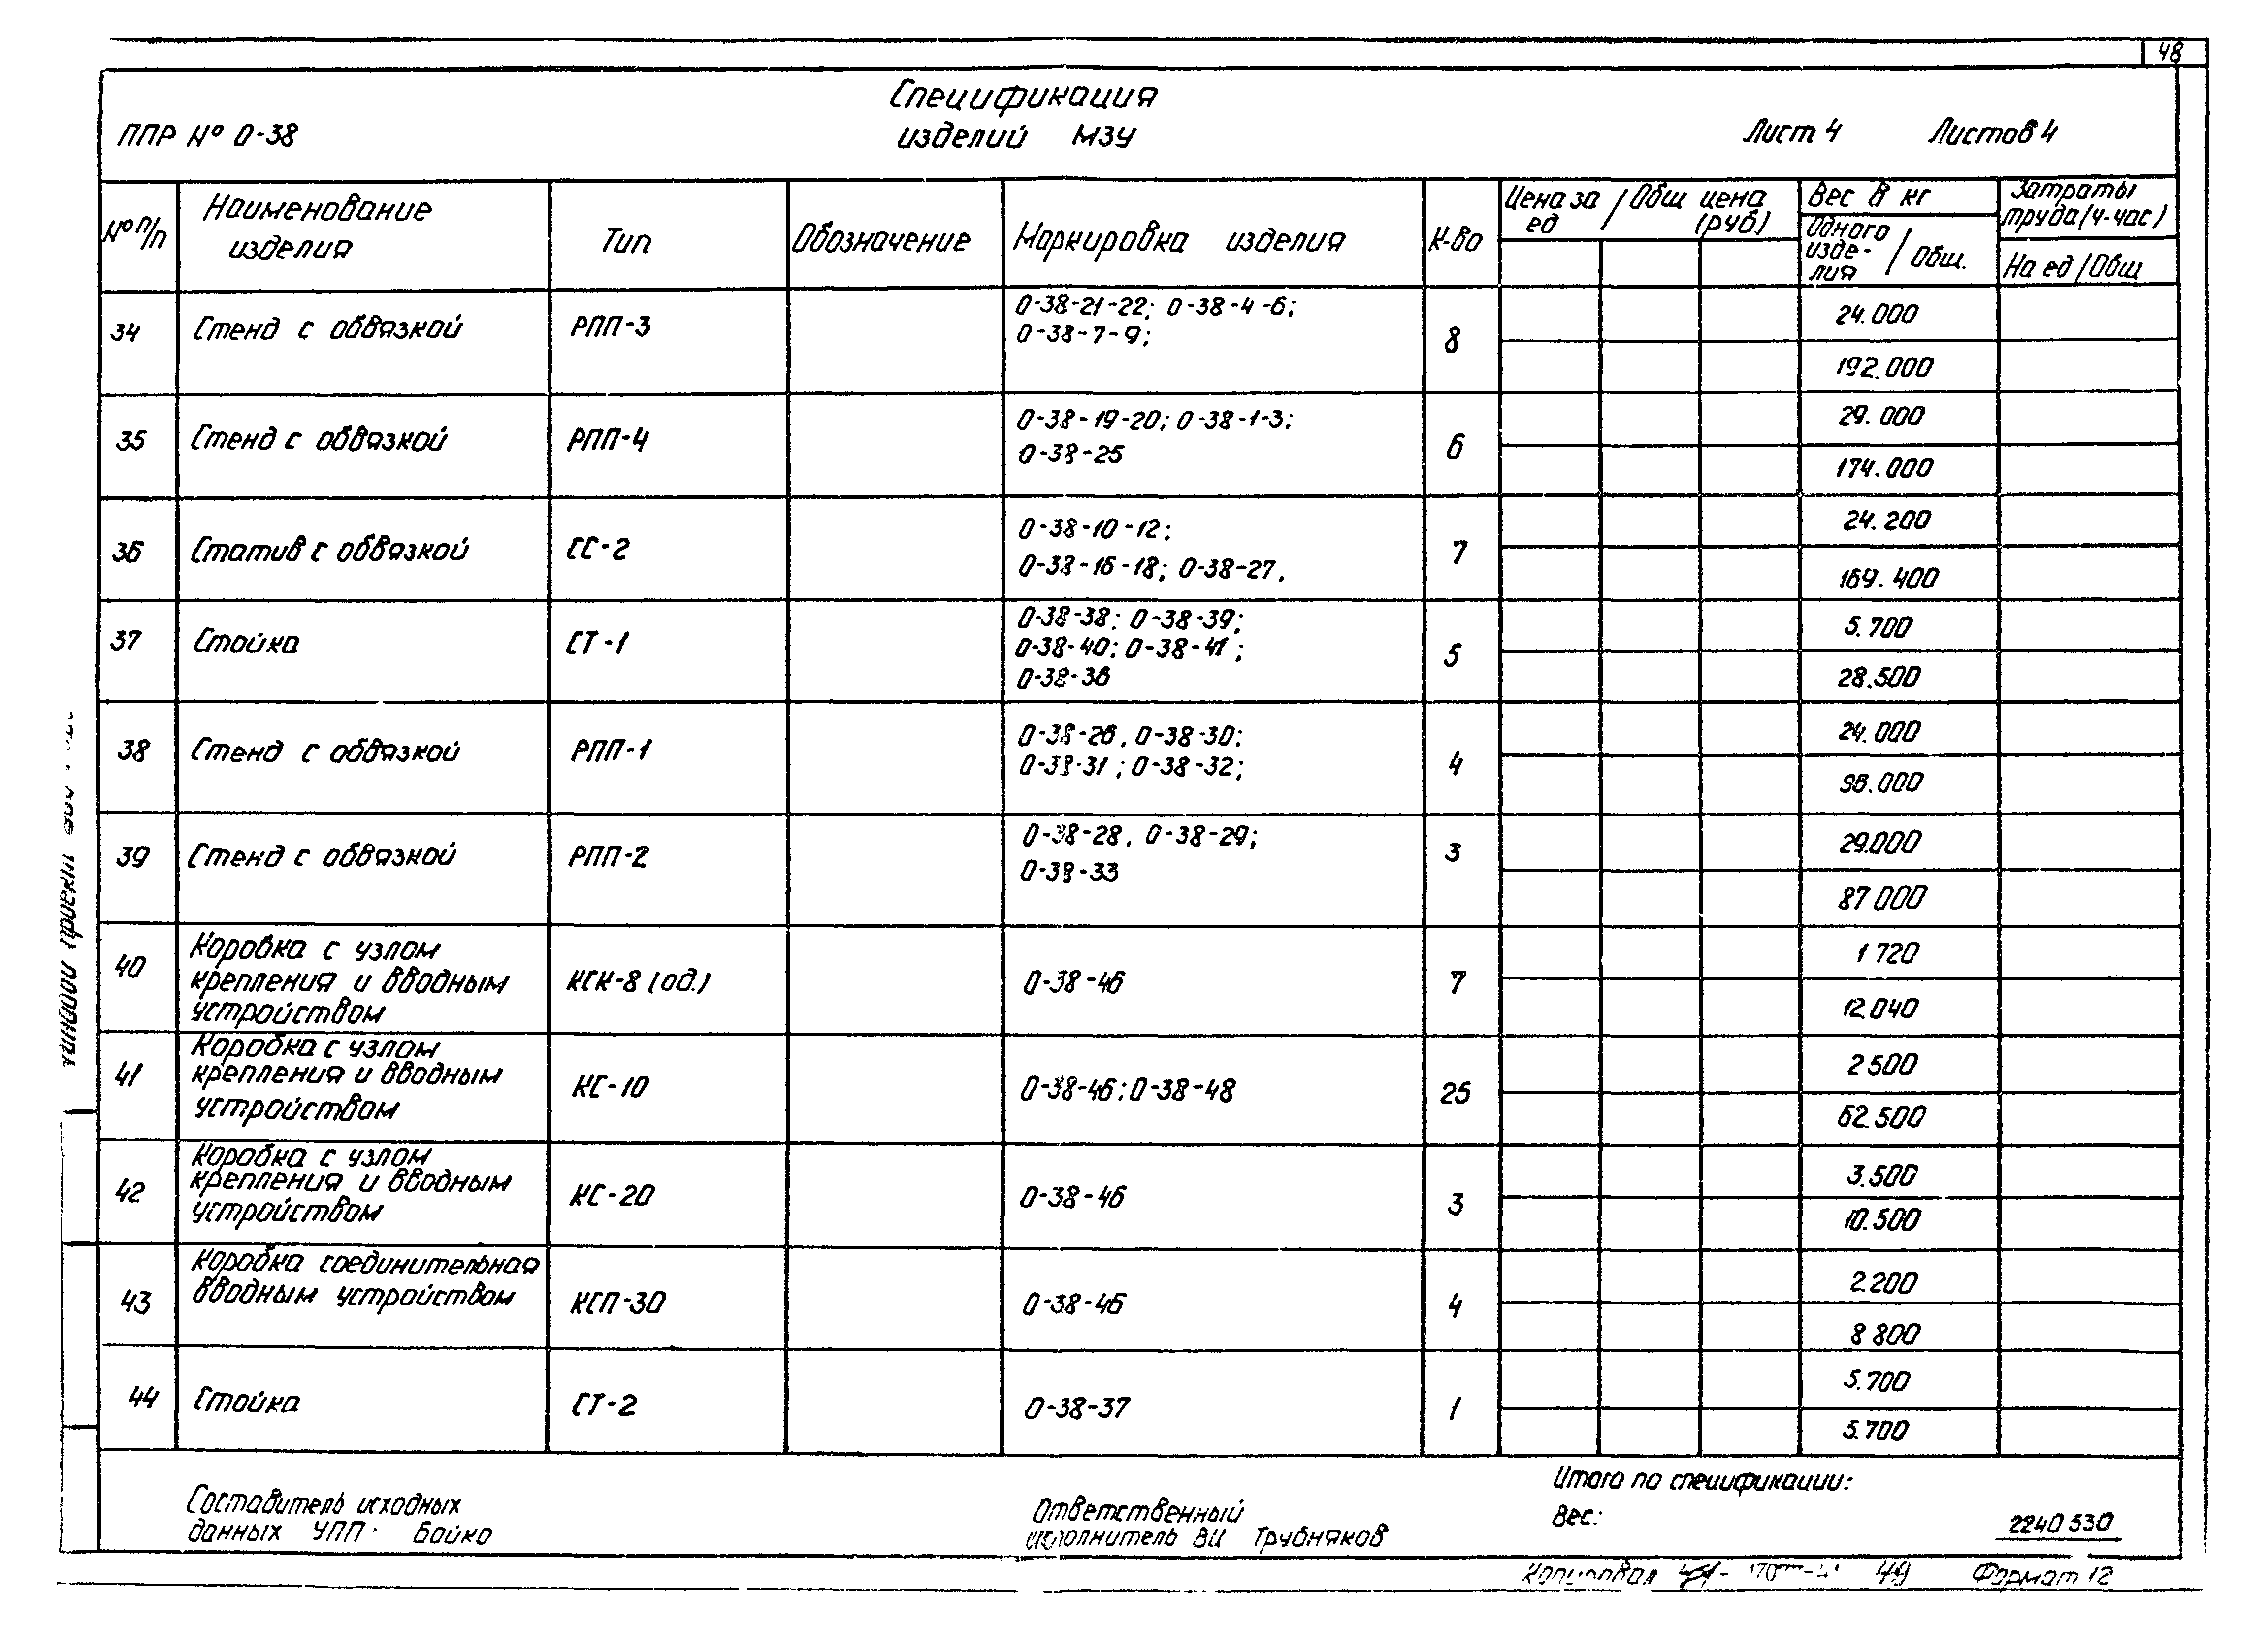 48
Спецификация
ППР № 0-38 изделий МЗУ Лист 4 Листов 4
№ п/п
Наименование
изделия
Тип
Обозначение
Маркировка изделия
К-во
Цена за ед / Общ цена (руб)
Вес в кг
Одного изде-
лия / Общ.
Затраты
труда (ч-час)
На ед / Общ
34 Стенд с обвязкой РПП-3 0-38-21-22; 0-38-4-6;
0-38-7-9; 8 24.000
192.000
35 Стенд с обвязкой РПП-4 0-38-19-20; 0-38-1-3;
0-38-25 6 29.000
174.000
36 Статив с обвязкой СС-2 0-38-10-12;
0-38-16-18; 0-38-27. 7 24.200
169.400
37 Стойка СТ-1 0-38-38; 0-38-39;
0-38-40; 0-38-41;
0-38-36 5 5.700
28.500
38 Стенд с обвязкой РПП-1 0-38-26, 0-38-30;
0-38-31; 0-38-32; 4 24.000
96.000
39 Стенд с обвязкой РПП-2 0-38-28, 0-38-29;
0-38-33 3 29.000
87 000
40 Коробка с узлом
крепления и вводным
устройством КСК-8 (од.) 0-38-46 7 1 720
12.040
41 Коробка с узлом
крепления и вводным
устройством КС-10 0-38-46; 0-38-48 25 2 500
62.500
42 Коробка с узлом
крепления и вводным
устройством КС-20 0-38-46 3 3.500
10.500
43 Коробка соединительная
вводным устройством КСП-30 0-38-46 4 2.200
8 800
44 Стойка СТ-2 0-38-37 1 5.700
5.700
Итого по спецификации:
Вес: 2240 530
Составитель исходных
данных УПП: Бойко
Ответственный
исполнитель ВЦ Трубняков
Копировал 49 Формат 12